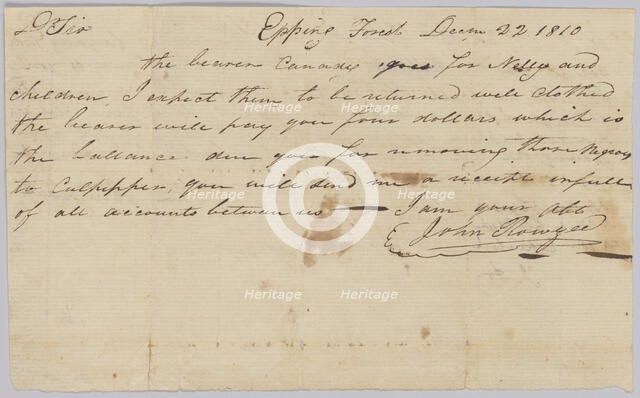 D Sir Epping Forest Decm 22 1810
the bearer Canady goes for Nelly and
children I expect them to be returned well clothed
the bearer will pay you four dollars which is
the ballance due you for removing those Negroes
to Culpipper, you will send me a receipt in full
of all accounts between us — I am your obt
John Rowzee
Heritage
Heritage
Heritage
Heritage
Heritage
Heritage